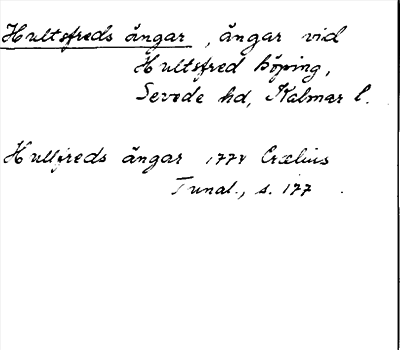 Hultsfreds ängar, ängar vid
Hultsfred köping,
Sevede hd, Kalmar l.
Hullfreds ängar 1774 Cræelius
Tunal., s. 177